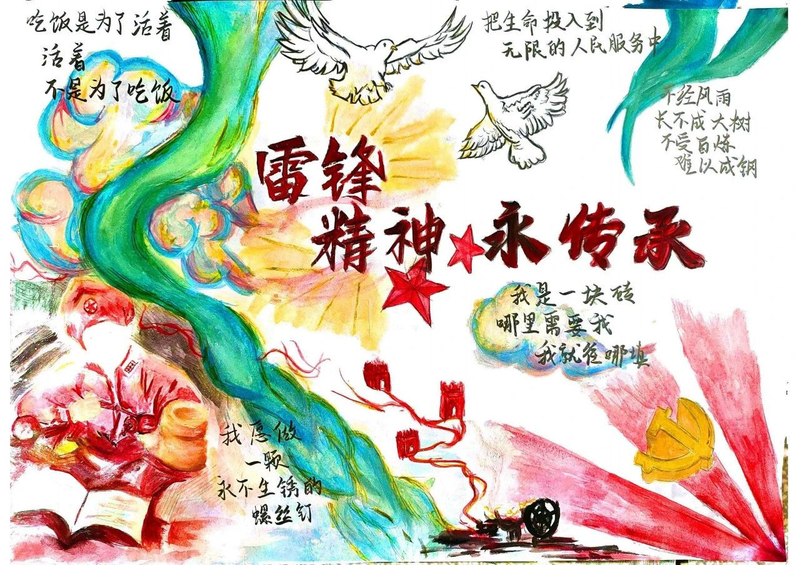 吃饭是为了活着
活着
不是为了吃饭
把生命投入到
无限的人民服务中
不经风雨
长不成大树
不受百炼
难以成钢
雷锋
精神永传承
我是一块砖
哪里需要我
我就往哪填
我愿做
一颗
永不生锈的
螺丝钉